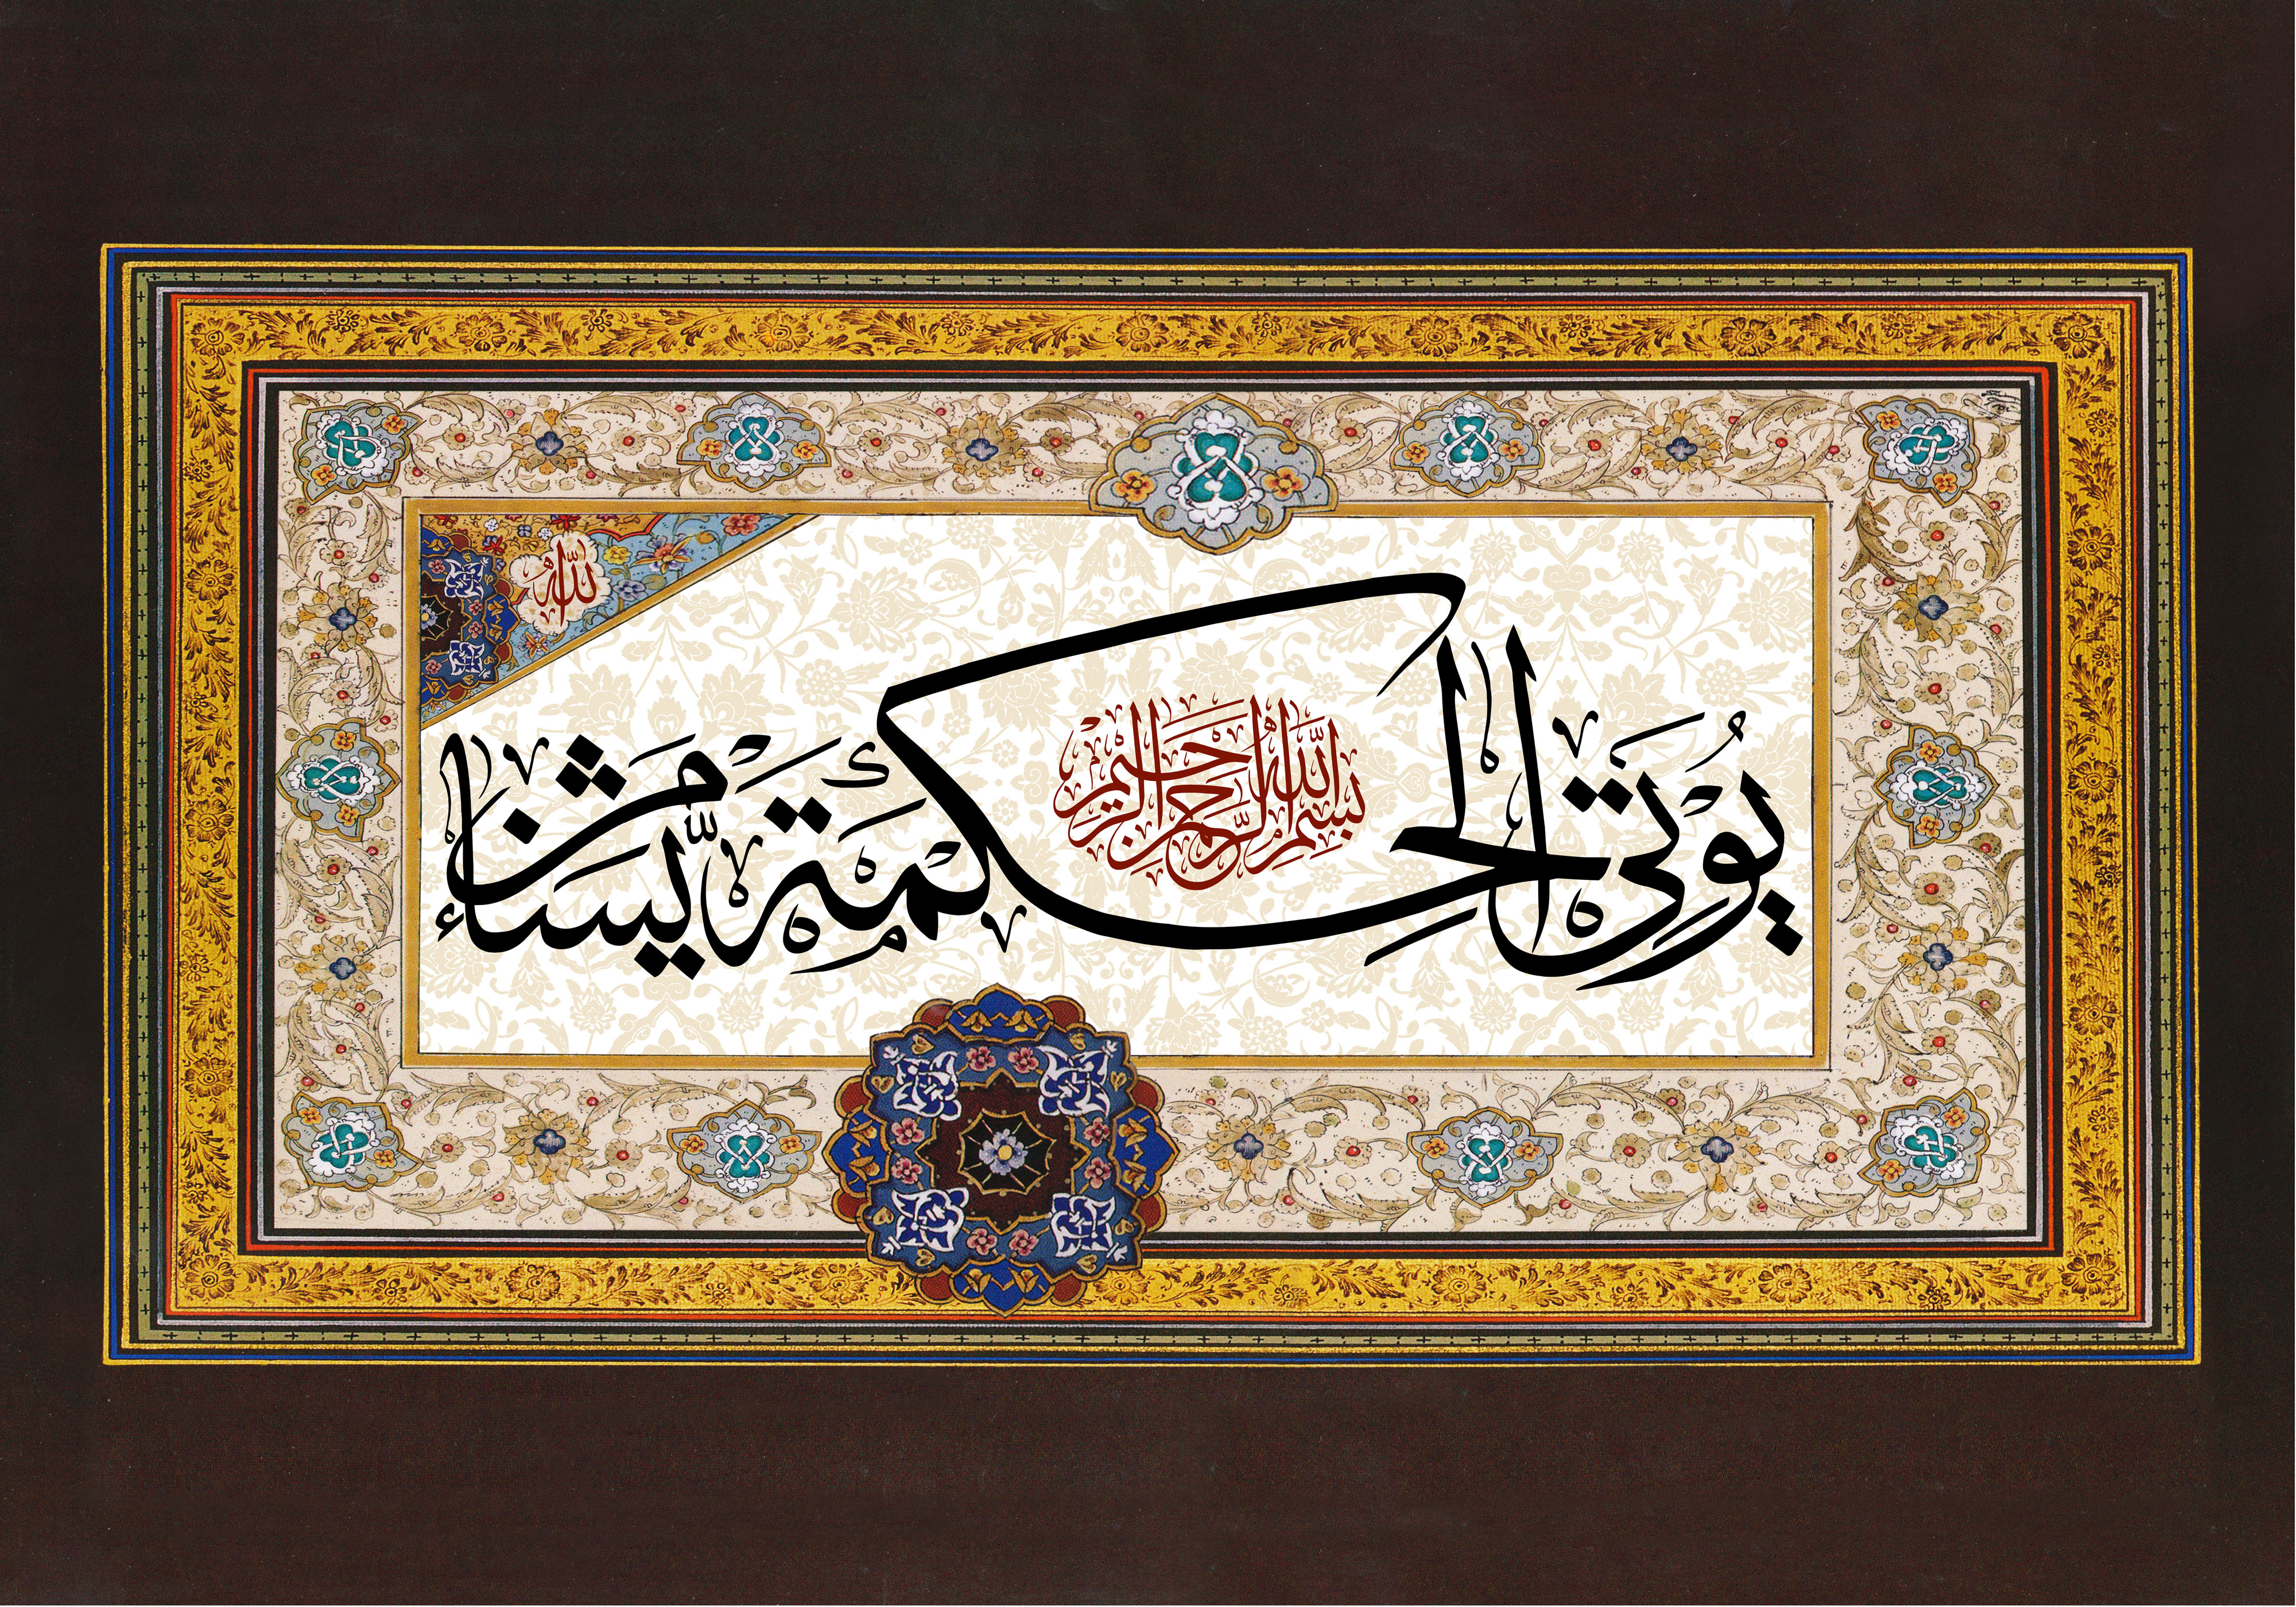 الله
بسم الله الرحمن الرحيم
يُؤتِي الحِكمَةَ مَن يَّشَاءُ